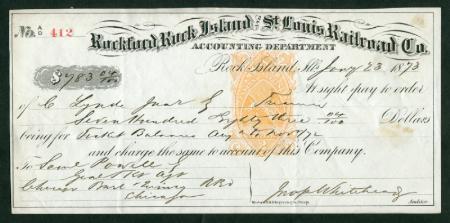 No. A/O 412
Rockford Rock Island and St. Louis Railroad Co.
ACCOUNTING DEPARTMENT
Rock Island, Ills. Jany 23 1873
$783 04/100
At sight pay to order
of C Lynde
Seven Hundred Eighty three 04/100 Dollars
being for Ticket Balances
and charge the same to account of this Company.
To Saml Powell
Genl Tkt Agt
Chicago Burl Quincy RRd
Chicago
Jno Whitehead
Auditor